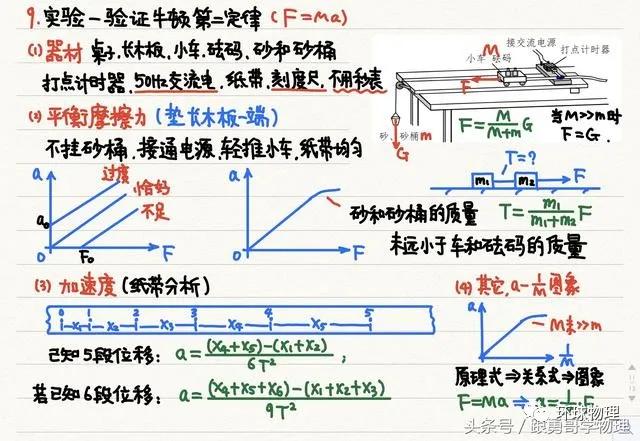 9.实验-验证牛顿第二定律(F=Ma)
(1)器材 桌子.长木板、小车.砝码、砂和砂桶
打点计时器、50Hz交流电、纸带、刻度尺、不用秒表
接交流电源
打点计时器
小车 砝码
M
F
砂、砂桶m
G
F=M/(M+m)G
当M>>m时
F=G.
(2)平衡摩擦力(垫长木板一端)
不挂砂桶、接通电源、轻推小车、纸带均匀
a 过度
恰好
不足
a₀
0 F₀ F
a
0 F
T=?
m₁ m₂ F
砂和砂桶的质量 T=m₁/(m₁+m₂)F
未远小于车和砝码的质量
(3)加速度(纸带分析)
0 1 2 3 4 5
X₁ X₂ X₃ X₄ X₅
已知5段位移: a=((X₄+X₅)-(X₁+X₂))/6T² ;
若已知6段位移: a=((X₄+X₅+X₆)-(X₁+X₂+X₃))/9T²
(4)其它,a-1/M图象
a
M未>>m
1/M
原理式⇒关系式⇒图象
F=Ma ⇒ a=1/M·F
环球物理
头条号/陈勇哥学物理